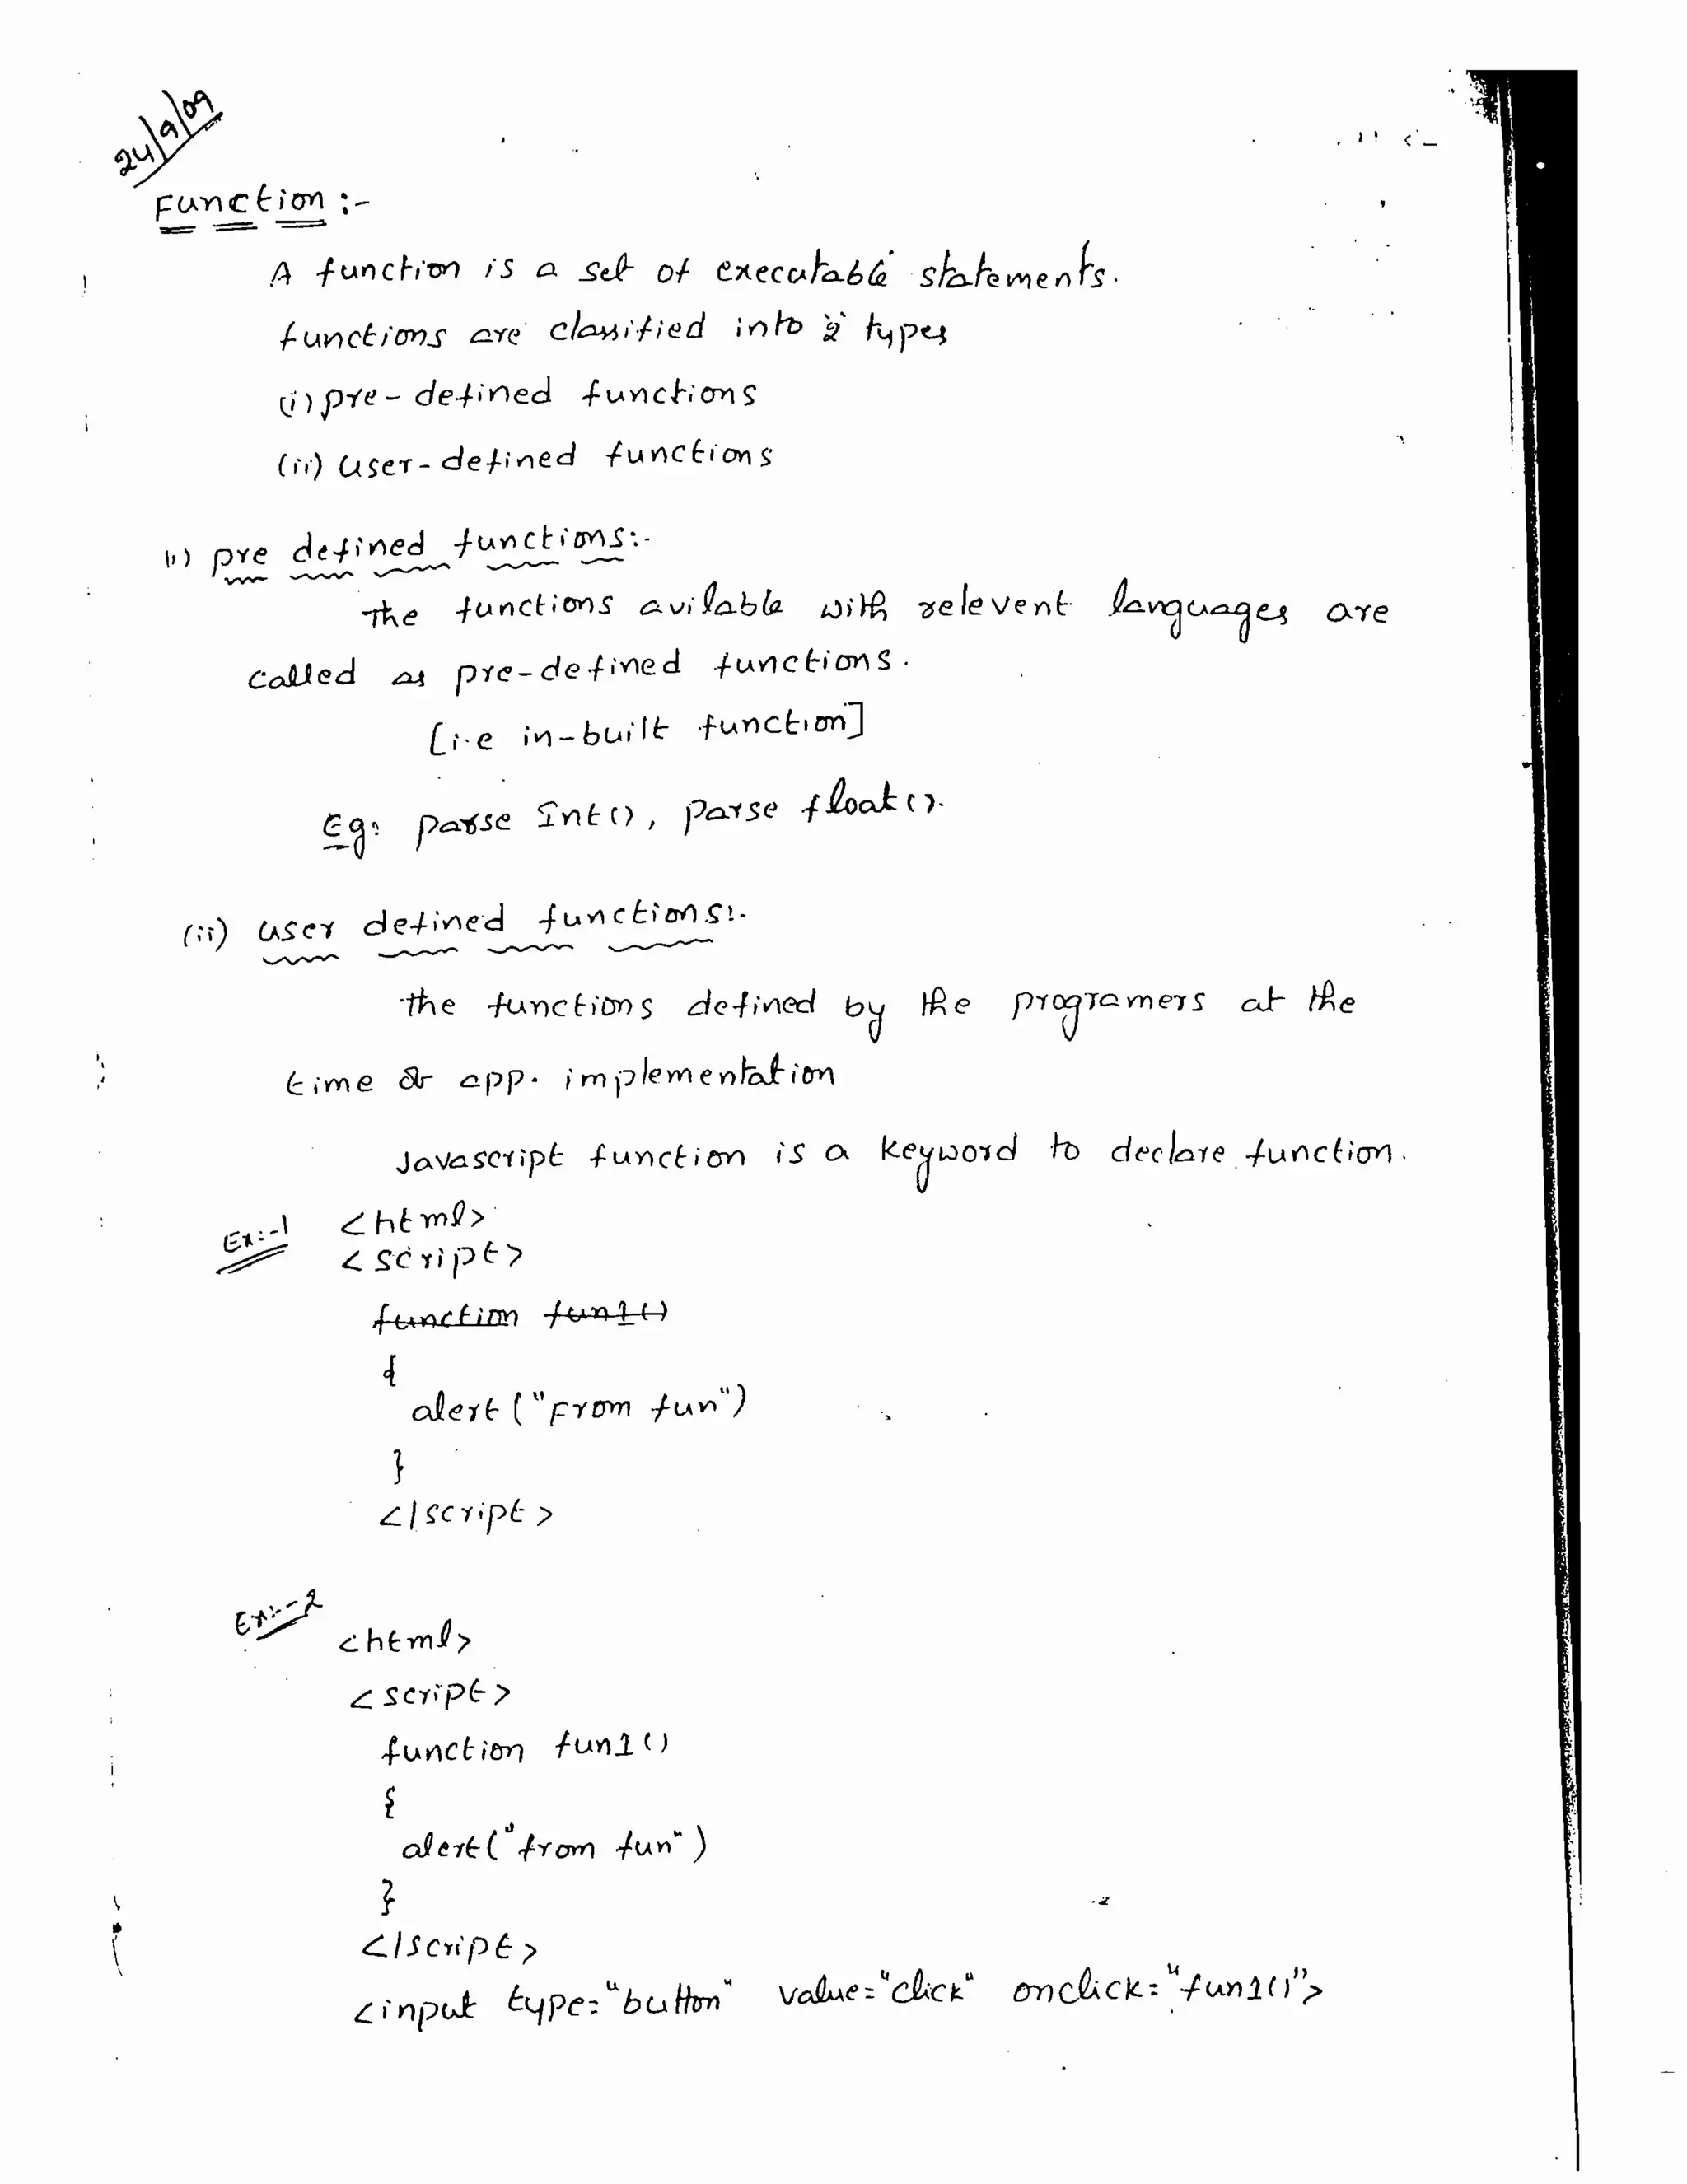 24/9/09
Function :-
A function is a set of executable statements.
functions are classified into 2 types
(i) pre-defined functions
(ii) user-defined functions
(i) pre defined functions:-
The functions avilable with relevent languages are
called as pre-defined functions.
[i.e in-built function]
Eg: parse Int(), parse float().
(ii) user defined functions:-
The functions defined by the programers at the
time of app. implementation
Javascript function is a keyword to declare function.
Ex:-1 <html>
<script>
function fun1()
{
alert ("From fun")
}
</script>
Ex:-2
<html>
<script>
function fun1()
{
alert("from fun")
}
</script>
<input type="button" value="click" onclick="fun1()">